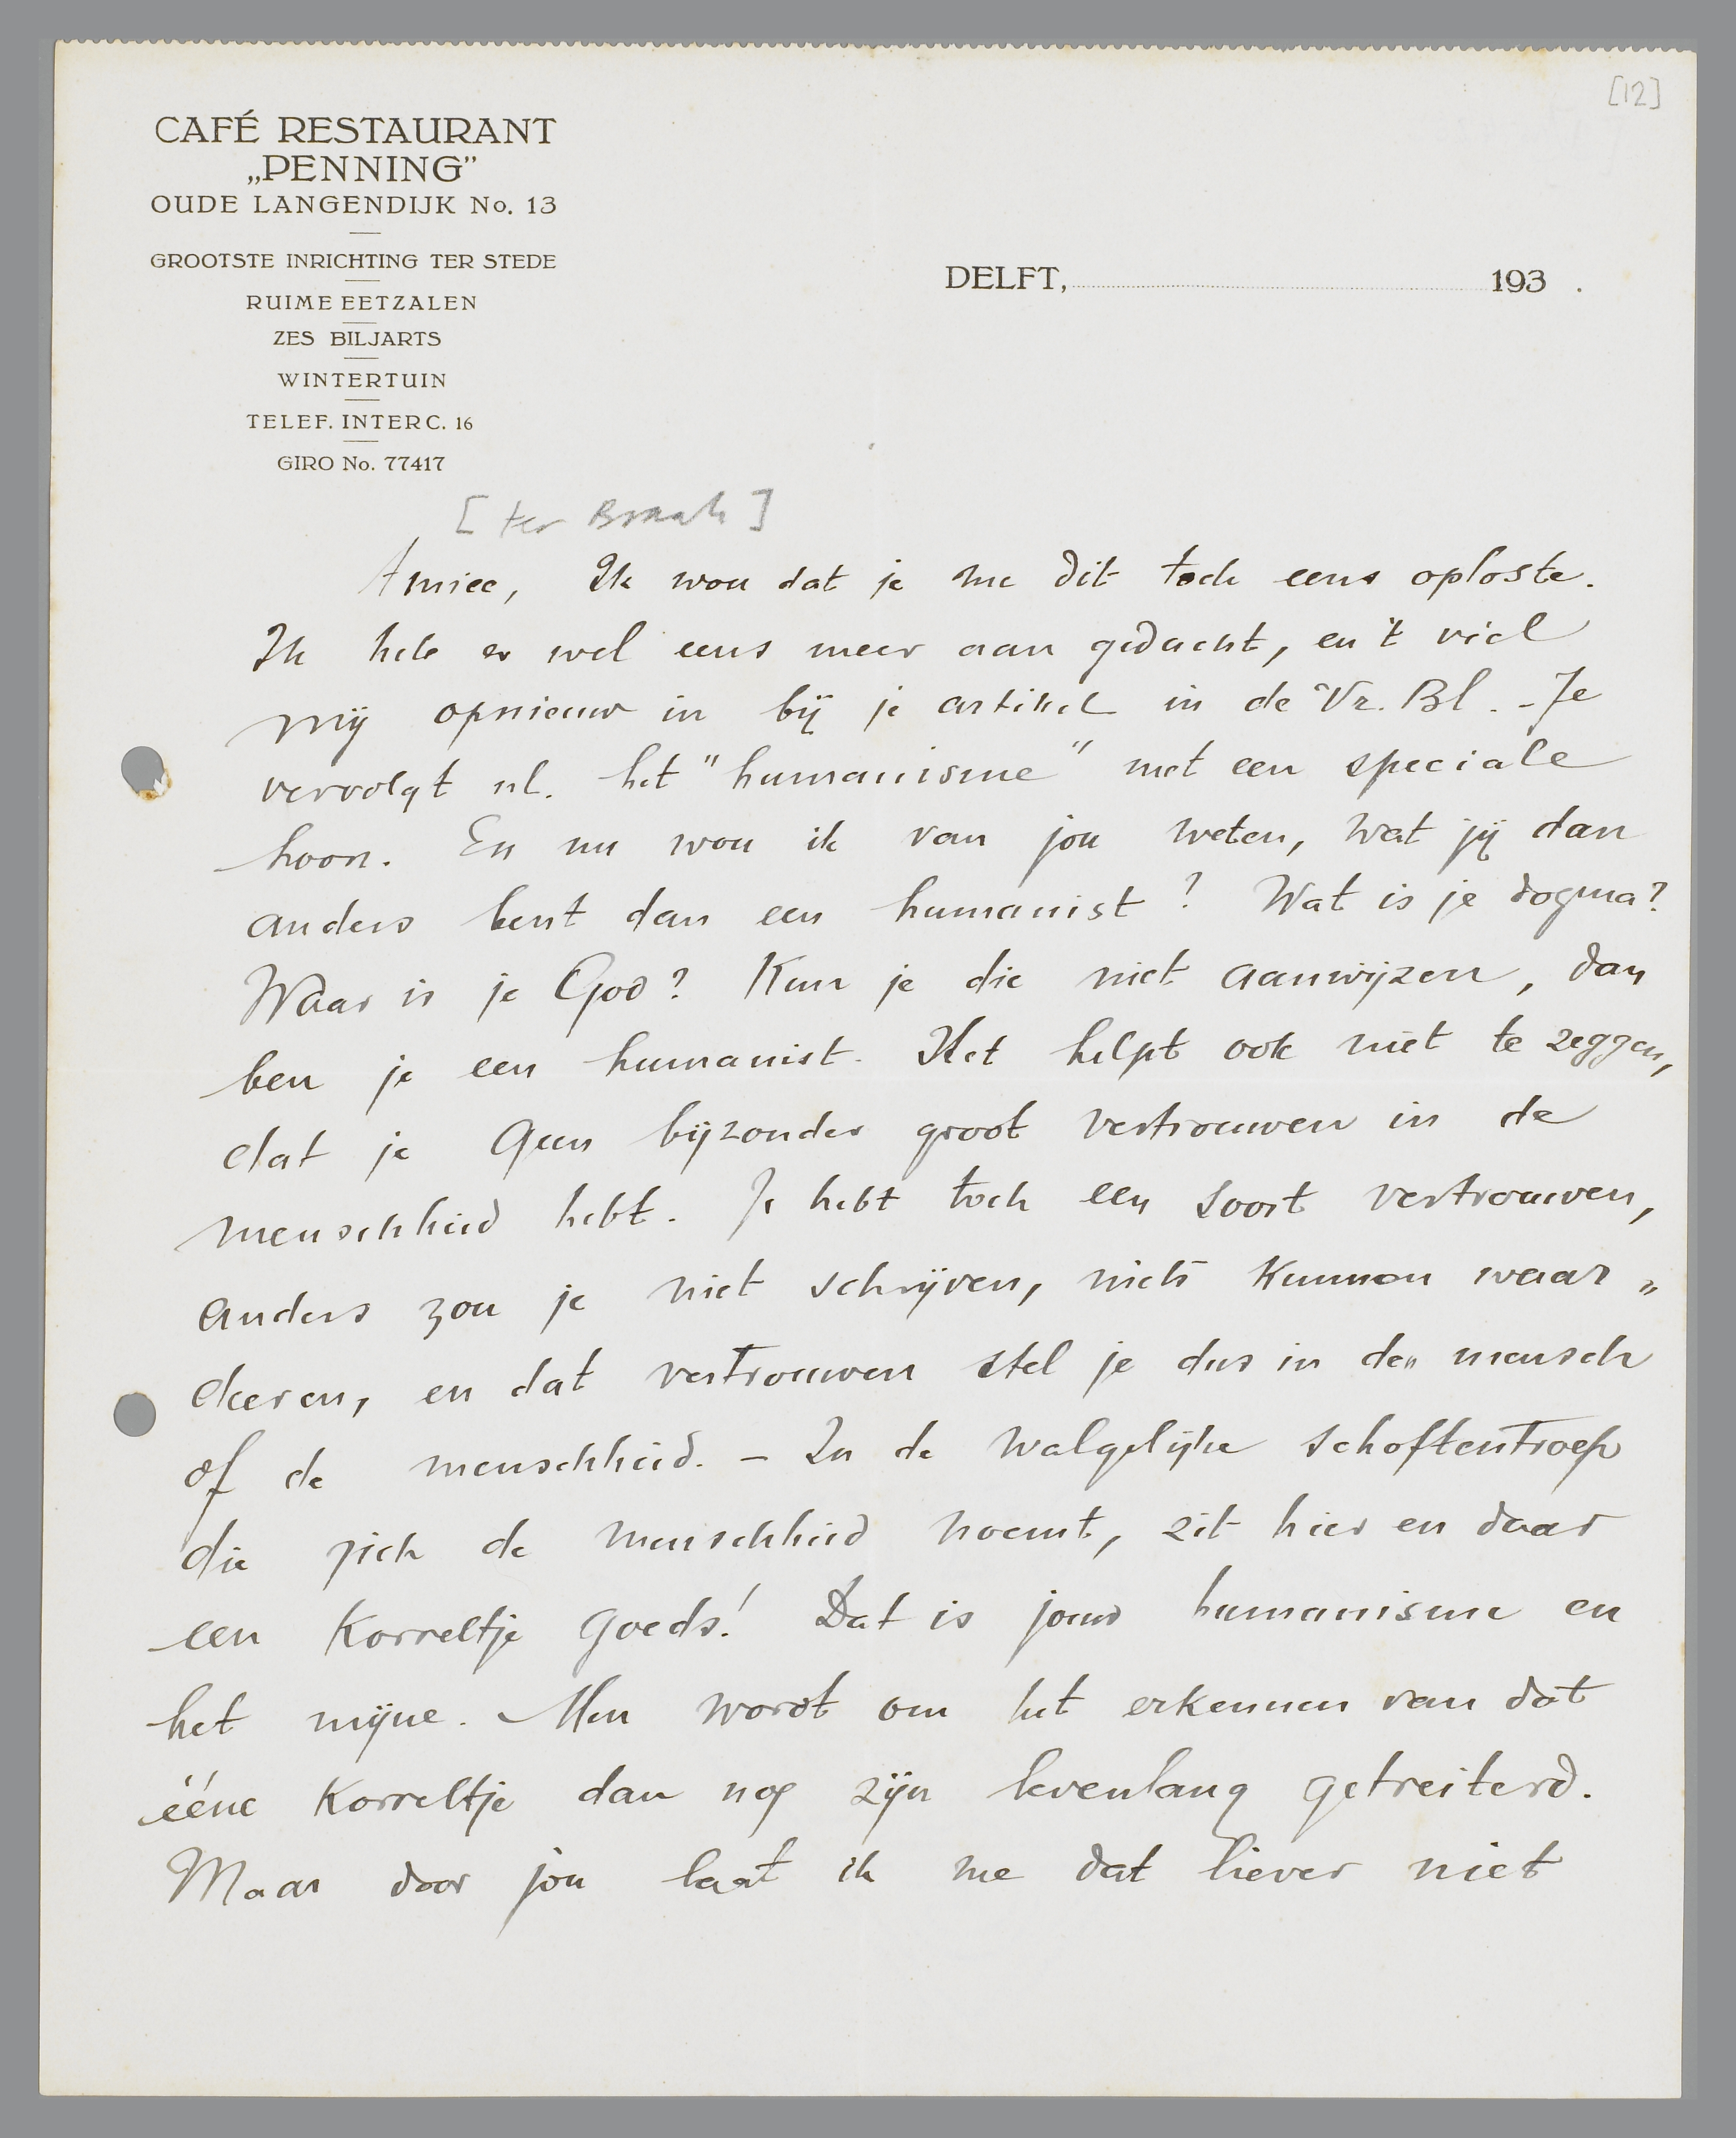 [12]
CAFÉ RESTAURANT
„PENNING"
OUDE LANGENDIJK No. 13
GROOTSTE INRICHTING TER STEDE
RUIME EETZALEN
ZES BILJARTS
WINTERTUIN
TELEF. INTERC. 16
GIRO No. 77417
DELFT, 193 .
[ter Braak]
Amice, Ik wou dat je me dit toch eens oploste.
Ik heb er wel eens meer aan gedacht, en 't viel
mij opnieuw in bij je artikel in de Vr. Bl. - Je
vervolgt nl. het "humanisme" met een speciale
hoon. En nu wou ik van jou weten, wat jij dan
anders bent dan een humanist? Wat is je dogma?
Waar is je God? Kun je die niet aanwijzen, dan
ben je een humanist. Het helpt ook niet te zeggen,
dat je geen bijzonder groot vertrouwen in de
menschheid hebt. Je hebt toch een soort vertrouwen,
anders zou je niet schrijven, niets kunnen waar„
deeren, en dat vertrouwen stel je dus in den mensch
of de menschheid. - In de walgelijke schoftentroep
die zich de menschheid noemt, zit hier en daar
een korreltje goeds! Dat is jouw humanisme en
het mijne. Men wordt om het erkennen van dat
ééne korreltje dan nog zijn levenlang getreiterd.
Maar door jou laat ik me dat liever niet